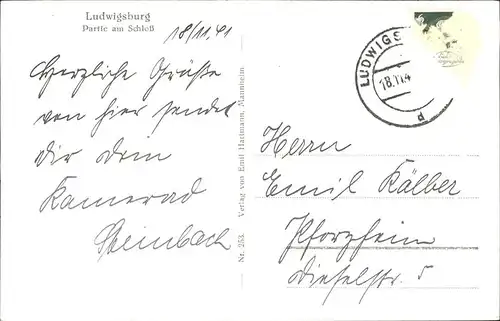 Ludwigsburg
Partie am Schloß
18/11.41
Herzliche Grüße
von hier sendet
Dir Dein
Kamerad
Steinbach
Nr. 253. Verlag von Emil Hartmann, Mannheim
LUDWIGS
18.11.4
d
Herrn
Emil Kälber
Pforzheim
Dieselstr. 5